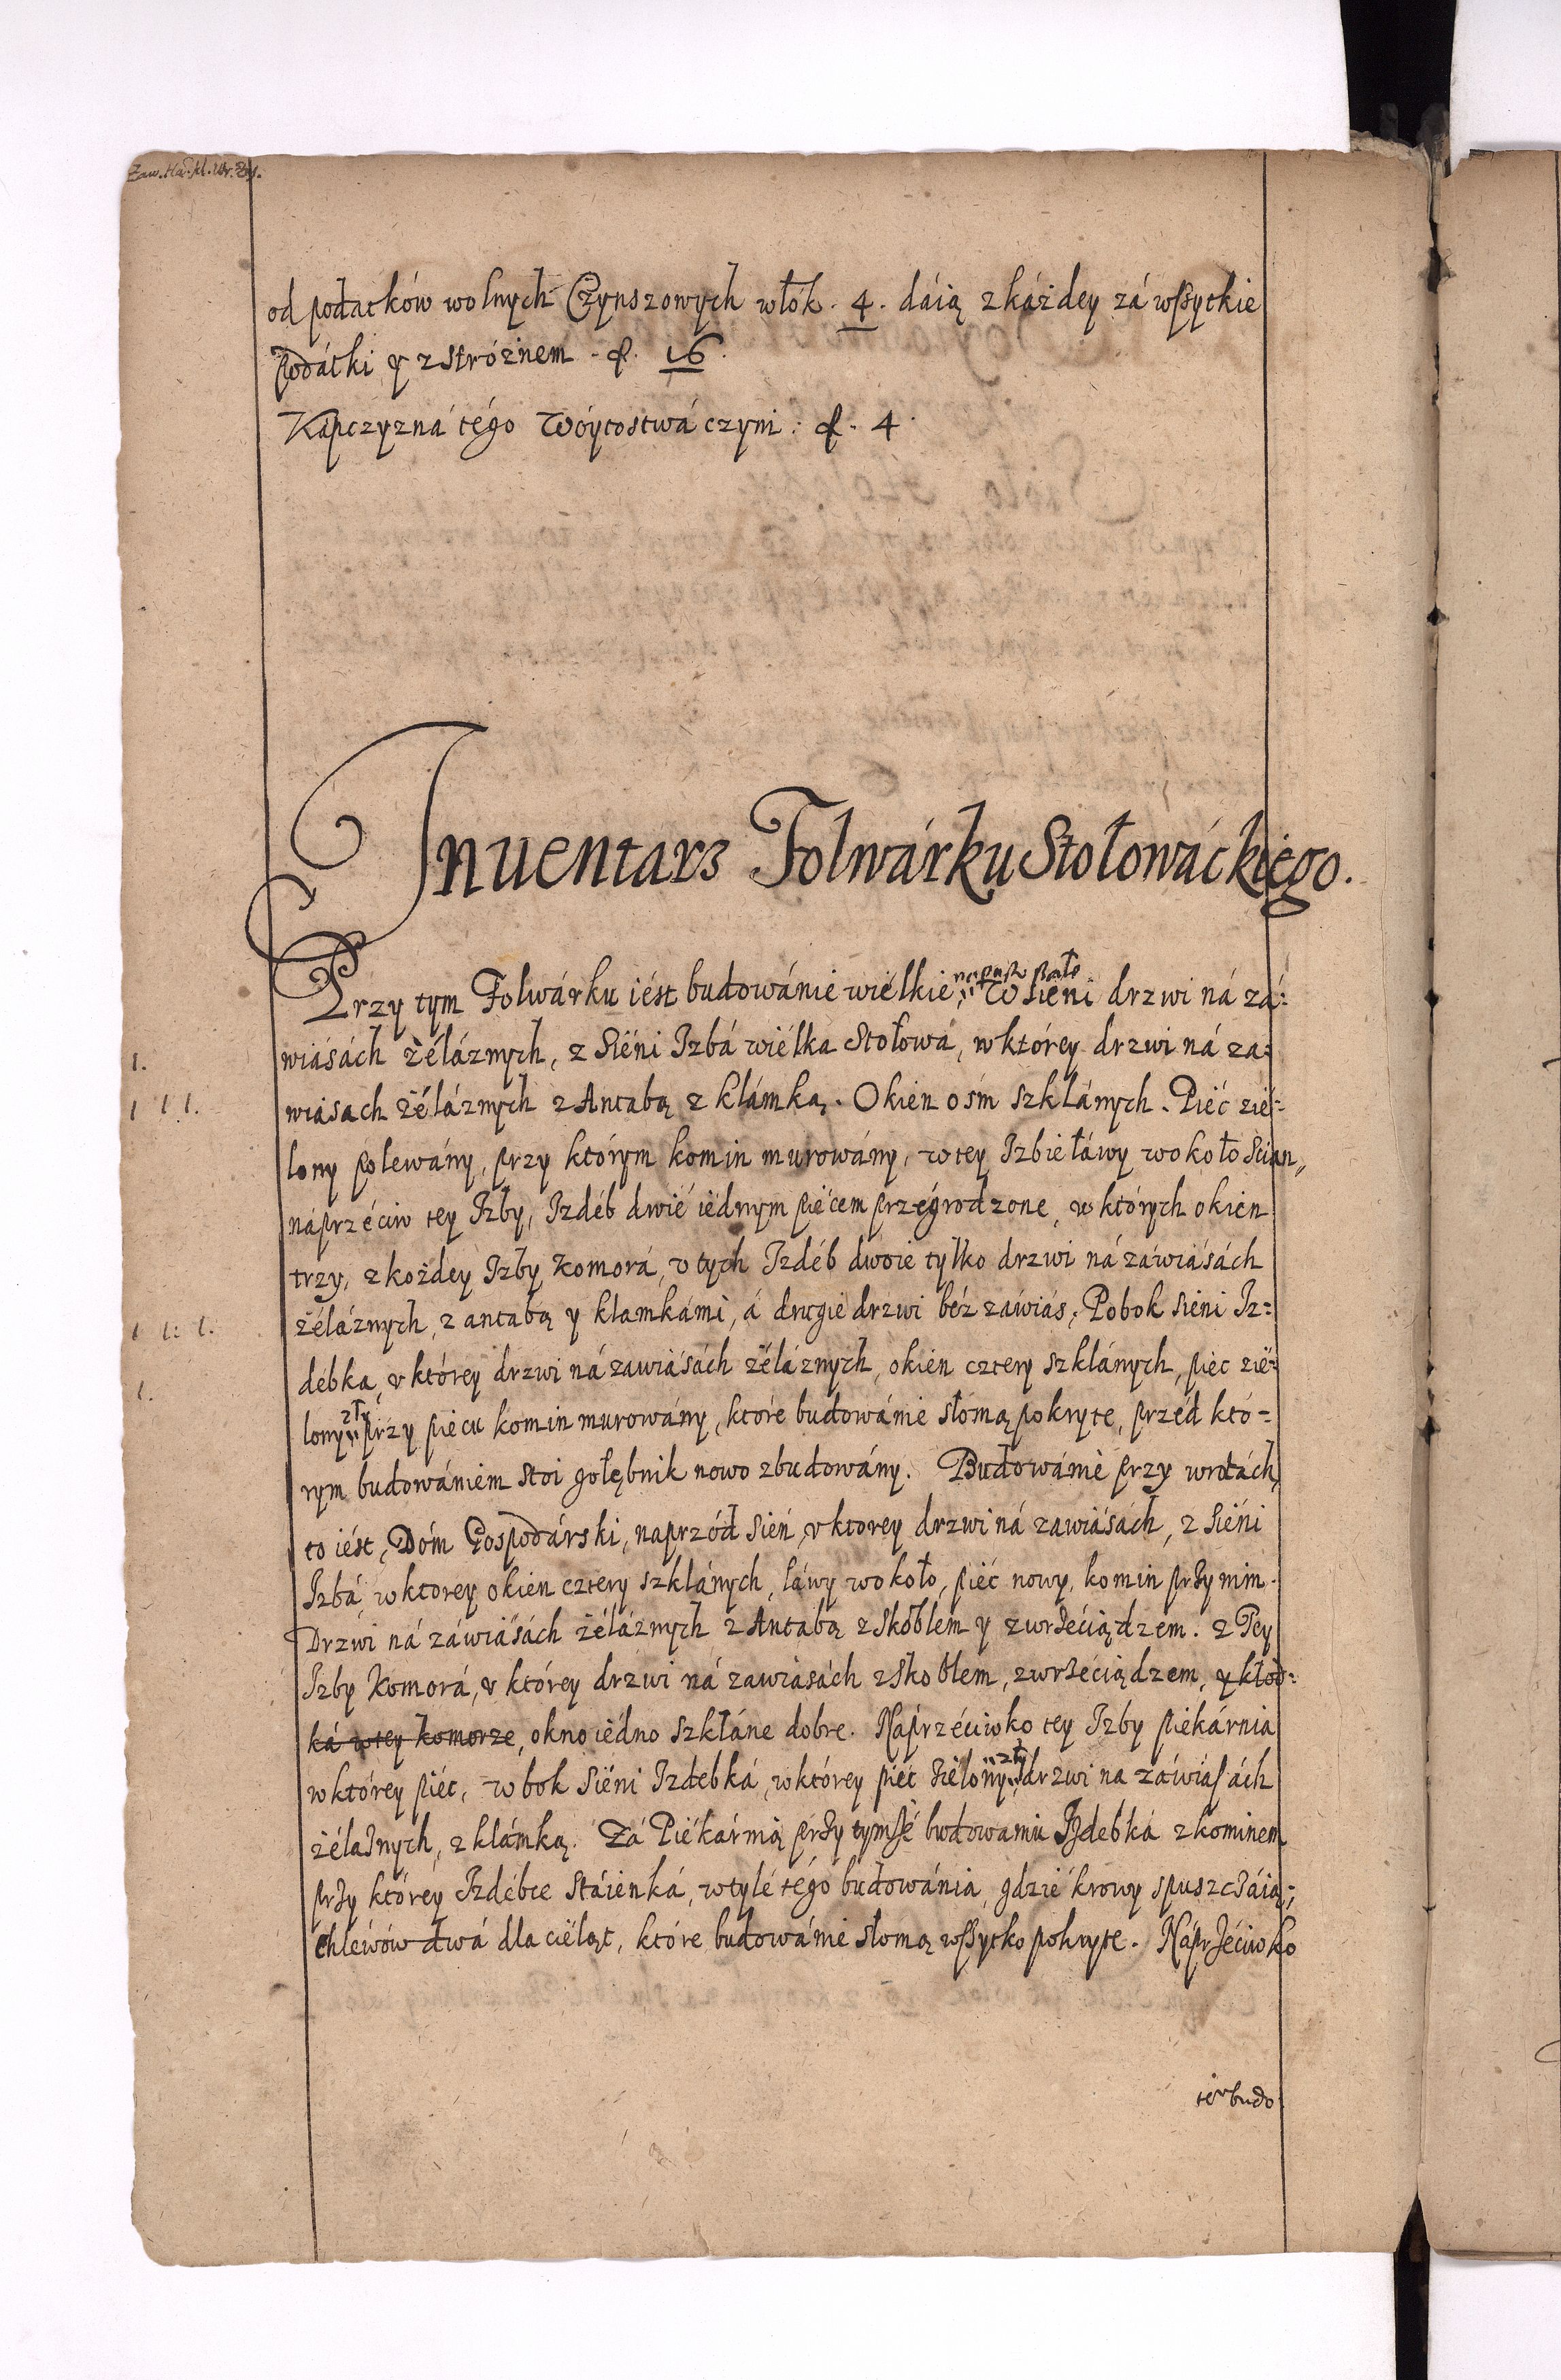 od podatków wolnych Czynszowych włók. 4. dáią z káżdey zá wszytkie
podátki y z stróżnem. fl. 16.
Kapczyzná tégo Wóytostwá czyni. fl. 4.
Inuentarz Folwárku Stołowáckiego.
Przy tym Folwárku iést budowánie wiélkie, W sieni drzwi ná zá=
1.
wiásách żéláznych, z Siéni Izbá wiélka Stołowa, w którey drzwi ná za=
1 1 1.
wiasach żéláznych z Antabą z klámką. Okien ośm szklánych. Piéć zié=
lony polewány, przy którym komin murowány, w tey Izbie łáwy wokoło Scian,,
náprzéciw tey Izby, Izdéb dwié iédnym piécem przégrodzone, w których okien
trzy, z kożdey Izby komorá, v tych Izdéb dwoie tylko drzwi ná záwiásách
1 1: 1.
żéláznych, z antabą y klamkámi, á drugie drzwi béz záwiás, Pobok sieni Iz=
debka, v którey drzwi ná záwiásách żéláznych, okien cztery szklánych, piec zié=
1.
zły
lony, przy piecu komin murowány, które budowánie słomą pokryte, przed któ=
rym budowániem stoi gołębnik nowo zbudowány. Budowánié przy wrotách,
to iést, Dóm Gospodárski, naprzód sień, v ktorey drzwi ná zawiásách, z siéni
Izbá, w ktorey okien cztery szklánych, láwy wokoło, piéć nowy, komin przy nim.
Drzwi ná záwiásách żéláznych z Antabą z Skoblem y z wrzéciądzem. z Tey
Izby Komorá, v którey drzwi ná zawiasách z skoblem, z wrzéciądzem, y kłód=
ká w tey komorze, okno iédno szkłáne dobre. Náprzéciwko tey Izby piekárnia
zły
w którey piéc, w bok siéni Izdebká, w którey piéć zielony, drzwi na záwiasách
żélaznych, z klámką. Zá Piékárnią przy tymże budowaniu Izdebká z kominem
przy którey Izdébce stáienká, w tylé tégo budowánia, gdzié krowy spuszczáią;
chléwów dwá dla ciéląt, które budowánie słomą wszytko pokryte. Náprzéciwko